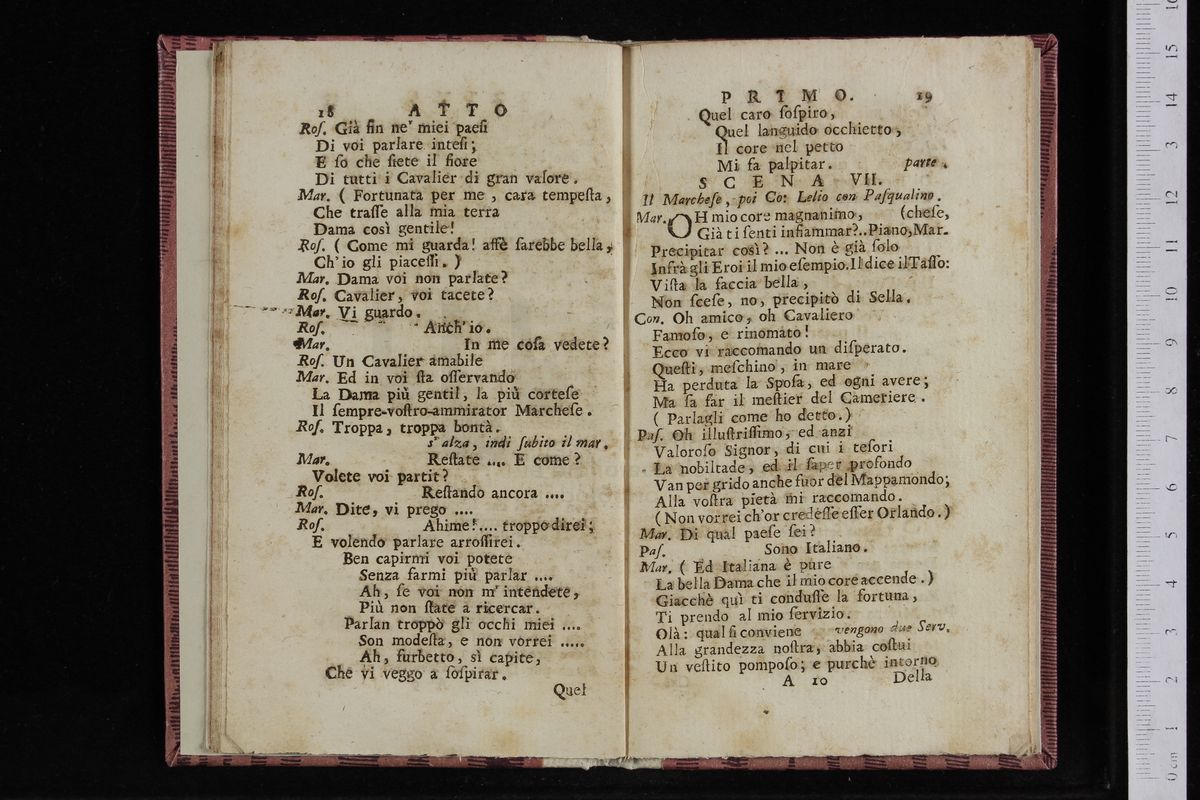 18 ATTO
Roſ. Già fin ne' miei paeſi
Di voi parlare inteſi;
E ſo che ſiete il fiore
Di tutti i Cavalier di gran valore.
Mar. ( Fortunata per me , cara tempeſta,
Che traſſe alla mia terra
Dama così gentile!
Roſ. ( Come mi guarda! affè ſarebbe bella,
Ch'io gli piaceſſi. )
Mar. Dama voi non parlate?
Roſ. Cavalier, voi tacete?
Mar. Vi guardo.
Roſ. Anch'io.
Mar. In me coſa vedete?
Roſ. Un Cavalier amabile
Mar. Ed in voi ſta oſſervando
La Dama più gentil, la più corteſe
Il ſempre-voſtro-ammirator Marcheſe.
Roſ. Troppa, troppa bontà.
s'alza, indi ſubito il mar.
Mar. Reſtate .... E come?
Volete voi partit?
Roſ. Reſtando ancora ....
Mar. Dite, vi prego ....
Roſ. Ahime!.... troppo direi;
E volendo parlare arroſſirei.
Ben capirmi voi potete
Senza farmi più parlar ....
Ah, ſe voi non m'intendete,
Più non ſtate a ricercar.
Parlan troppò gli occhi miei ....
Son modeſta, e non vorrei .....
Ah, furbetto, sì capite,
Chè vi veggo a ſoſpirar.
Quel
PRIMO. 19
Quel caro ſoſpiro,
Quel languido occhietto,
Il core nel petto
Mi fa palpitar. parte.
SCENA VII.
Il Marcheſe, poi Co: Lelio con Paſqualino.
Mar. OH mio core magnanimo, (cheſe,
Già ti ſenti infiammar?..Piano,Mar-
Precipitar così? ... Non è già ſolo
Infrà gli Eroi il mio eſempio.Il dice il Taſſo:
Viſta la faccia bella,
Non ſceſe, no, precipitò di Sella.
Con. Oh amico, oh Cavaliero
Famoſo, e rinomato!
Ecco vi raccomando un diſperato.
Queſti, meſchino, in mare
Ha perduta la Spoſa, ed ogni avere;
Ma ſa far il meſtier del Cameriere.
( Parlagli come ho detto.)
Paſ. Oh illuſtriſſimo, ed anzi
Valoroſo Signor, di cui i teſori
La nobiltade, ed il ſaper profondo
Van per grido anche fuor del Mappamondo;
Alla voſtra pietà mi raccomando.
( Non vorrei ch'or credeſſe eſſer Orlando.)
Mar. Di qual paeſe ſei?
Paſ. Sono Italiano.
Mar. ( Ed Italiana è pure
La bella Dama che il mio core accende.)
Giacchè quì ti conduſſe la fortuna,
Ti prendo al mio ſervizio.
Olà: qual ſi conviene vengono due Serv.
Alla grandezza noſtra, abbia coſtui
Un veſtito pompoſo; e purchè intorno
A 10 Della
0 cm 1 2 3 4 5 6 7 8 9 10 11 12 3 14 15 16